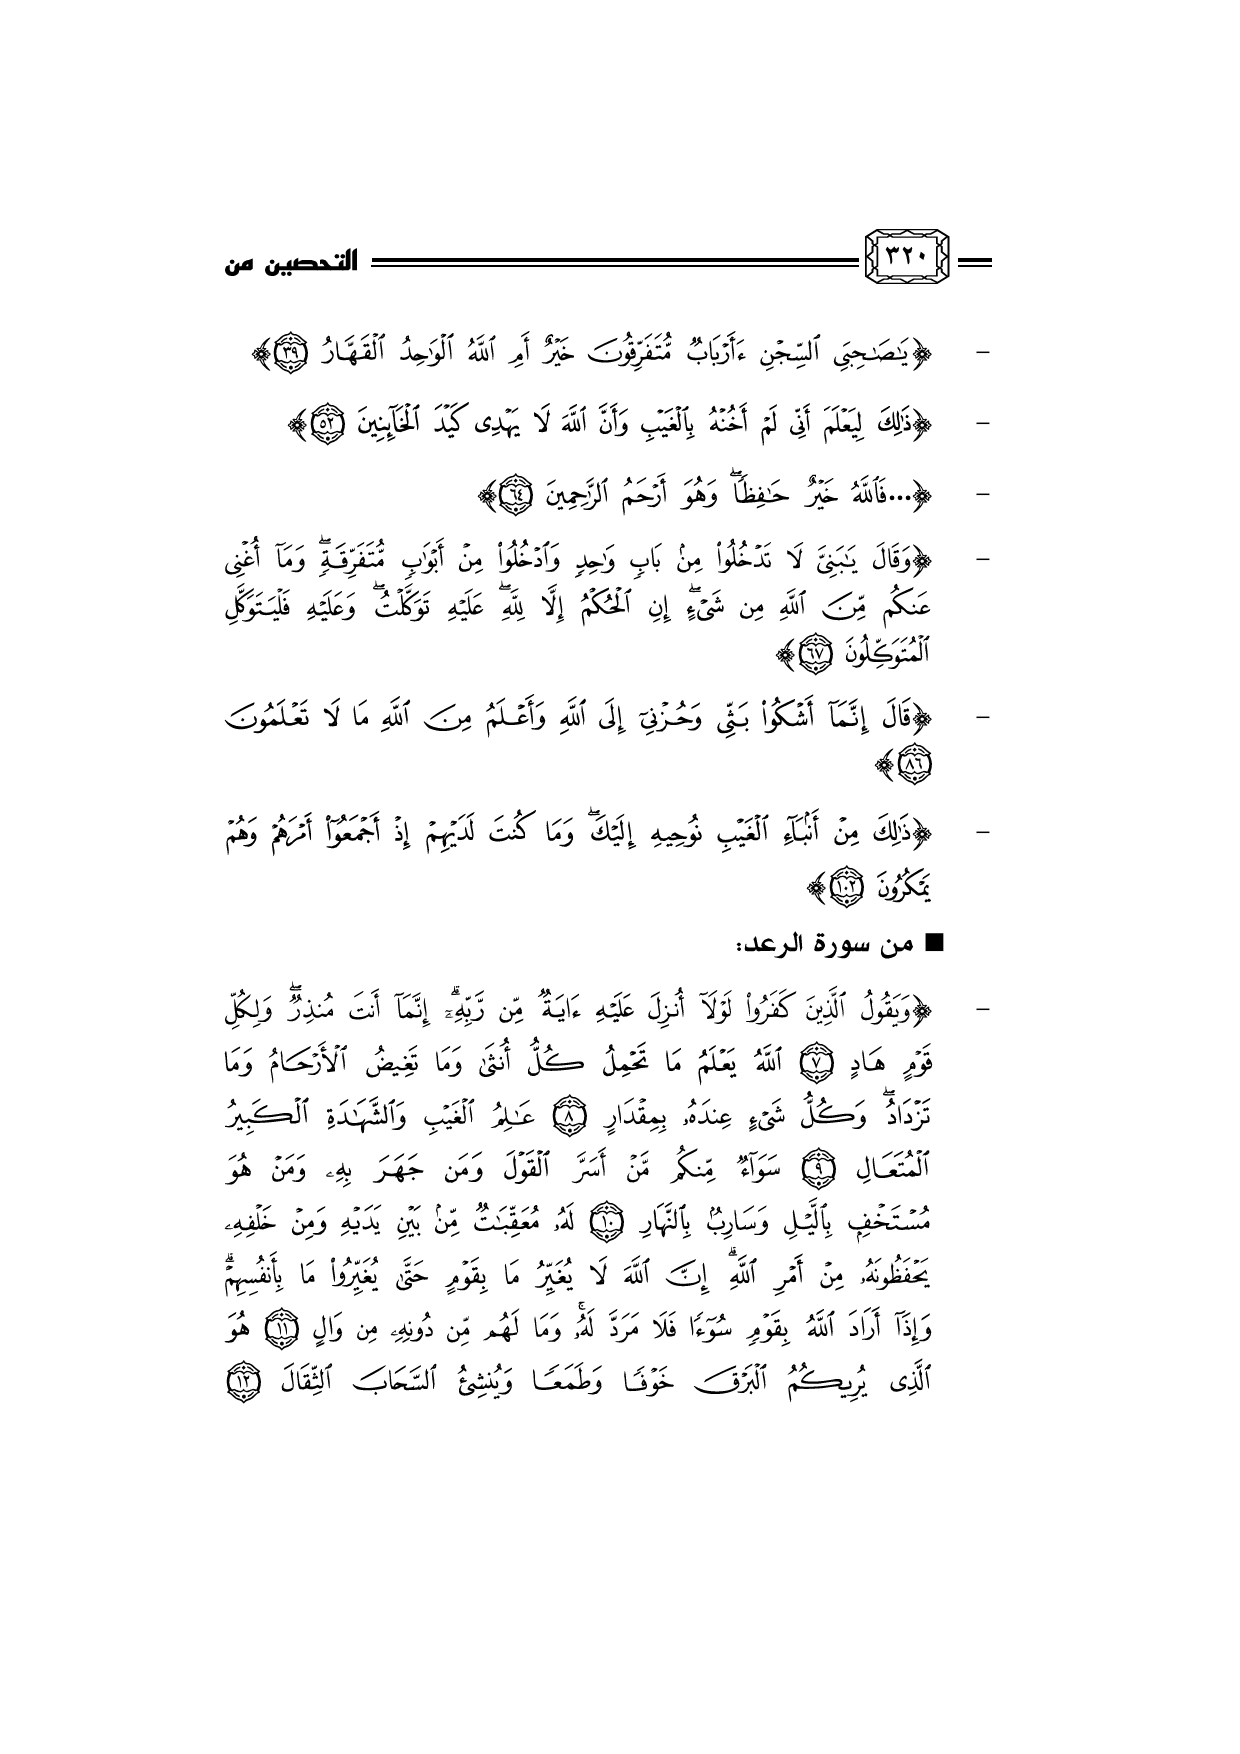 ٣٢٠ التحصين من
- ﴿يَٰصَٰحِبَيِ ٱلسِّجۡنِ ءَأَرۡبَابٞ مُّتَفَرِّقُونَ خَيۡرٌ أَمِ ٱللَّهُ ٱلۡوَٰحِدُ ٱلۡقَهَّارُ ٣٩﴾
- ﴿ذَٰلِكَ لِيَعۡلَمَ أَنِّي لَمۡ أَخُنۡهُ بِٱلۡغَيۡبِ وَأَنَّ ٱللَّهَ لَا يَهۡدِي كَيۡدَ ٱلۡخَآئِنِينَ ٥٢﴾
- ﴿...فَٱللَّهُ خَيۡرٌ حَٰفِظٗاۖ وَهُوَ أَرۡحَمُ ٱلرَّٰحِمِينَ ٦٤﴾
- ﴿وَقَالَ يَٰبَنِيَّ لَا تَدۡخُلُواْ مِنۢ بَابٖ وَٰحِدٖ وَٱدۡخُلُواْ مِنۡ أَبۡوَٰبٖ مُّتَفَرِّقَةٖۖ وَمَآ أُغۡنِي
عَنكُم مِّنَ ٱللَّهِ مِن شَيۡءٍۖ إِنِ ٱلۡحُكۡمُ إِلَّا لِلَّهِۖ عَلَيۡهِ تَوَكَّلۡتُۖ وَعَلَيۡهِ فَلۡيَتَوَكَّلِ
ٱلۡمُتَوَكِّلُونَ ٦٧﴾
- ﴿قَالَ إِنَّمَآ أَشۡكُواْ بَثِّي وَحُزۡنِيٓ إِلَى ٱللَّهِ وَأَعۡلَمُ مِنَ ٱللَّهِ مَا لَا تَعۡلَمُونَ
٨٦﴾
- ﴿ذَٰلِكَ مِنۡ أَنۢبَآءِ ٱلۡغَيۡبِ نُوحِيهِ إِلَيۡكَۖ وَمَا كُنتَ لَدَيۡهِمۡ إِذۡ أَجۡمَعُوٓاْ أَمۡرَهُمۡ وَهُمۡ
يَمۡكُرُونَ ١٠٢﴾
■ من سورة الرعد:
- ﴿وَيَقُولُ ٱلَّذِينَ كَفَرُواْ لَوۡلَآ أُنزِلَ عَلَيۡهِ ءَايَةٞ مِّن رَّبِّهِۦٓۗ إِنَّمَآ أَنتَ مُنذِرٞۖ وَلِكُلِّ
قَوۡمٍ هَادٍ ٧ ٱللَّهُ يَعۡلَمُ مَا تَحۡمِلُ كُلُّ أُنثَىٰ وَمَا تَغِيضُ ٱلۡأَرۡحَامُ وَمَا
تَزۡدَادُۖ وَكُلُّ شَيۡءٍ عِندَهُۥ بِمِقۡدَارٍ ٨ عَٰلِمُ ٱلۡغَيۡبِ وَٱلشَّهَٰدَةِ ٱلۡكَبِيرُ
ٱلۡمُتَعَالِ ٩ سَوَآءٞ مِّنكُم مَّنۡ أَسَرَّ ٱلۡقَوۡلَ وَمَن جَهَرَ بِهِۦ وَمَنۡ هُوَ
مُسۡتَخۡفِۭ بِٱلَّيۡلِ وَسَارِبُۢ بِٱلنَّهَارِ ١٠ لَهُۥ مُعَقِّبَٰتٞ مِّنۢ بَيۡنِ يَدَيۡهِ وَمِنۡ خَلۡفِهِۦ
يَحۡفَظُونَهُۥ مِنۡ أَمۡرِ ٱللَّهِۗ إِنَّ ٱللَّهَ لَا يُغَيِّرُ مَا بِقَوۡمٍ حَتَّىٰ يُغَيِّرُواْ مَا بِأَنفُسِهِمۡۗ
وَإِذَآ أَرَادَ ٱللَّهُ بِقَوۡمٖ سُوٓءٗا فَلَا مَرَدَّ لَهُۥۚ وَمَا لَهُم مِّن دُونِهِۦ مِن وَالٍ ١١ هُوَ
ٱلَّذِي يُرِيكُمُ ٱلۡبَرۡقَ خَوۡفٗا وَطَمَعٗا وَيُنشِئُ ٱلسَّحَابَ ٱلثِّقَالَ ١٢